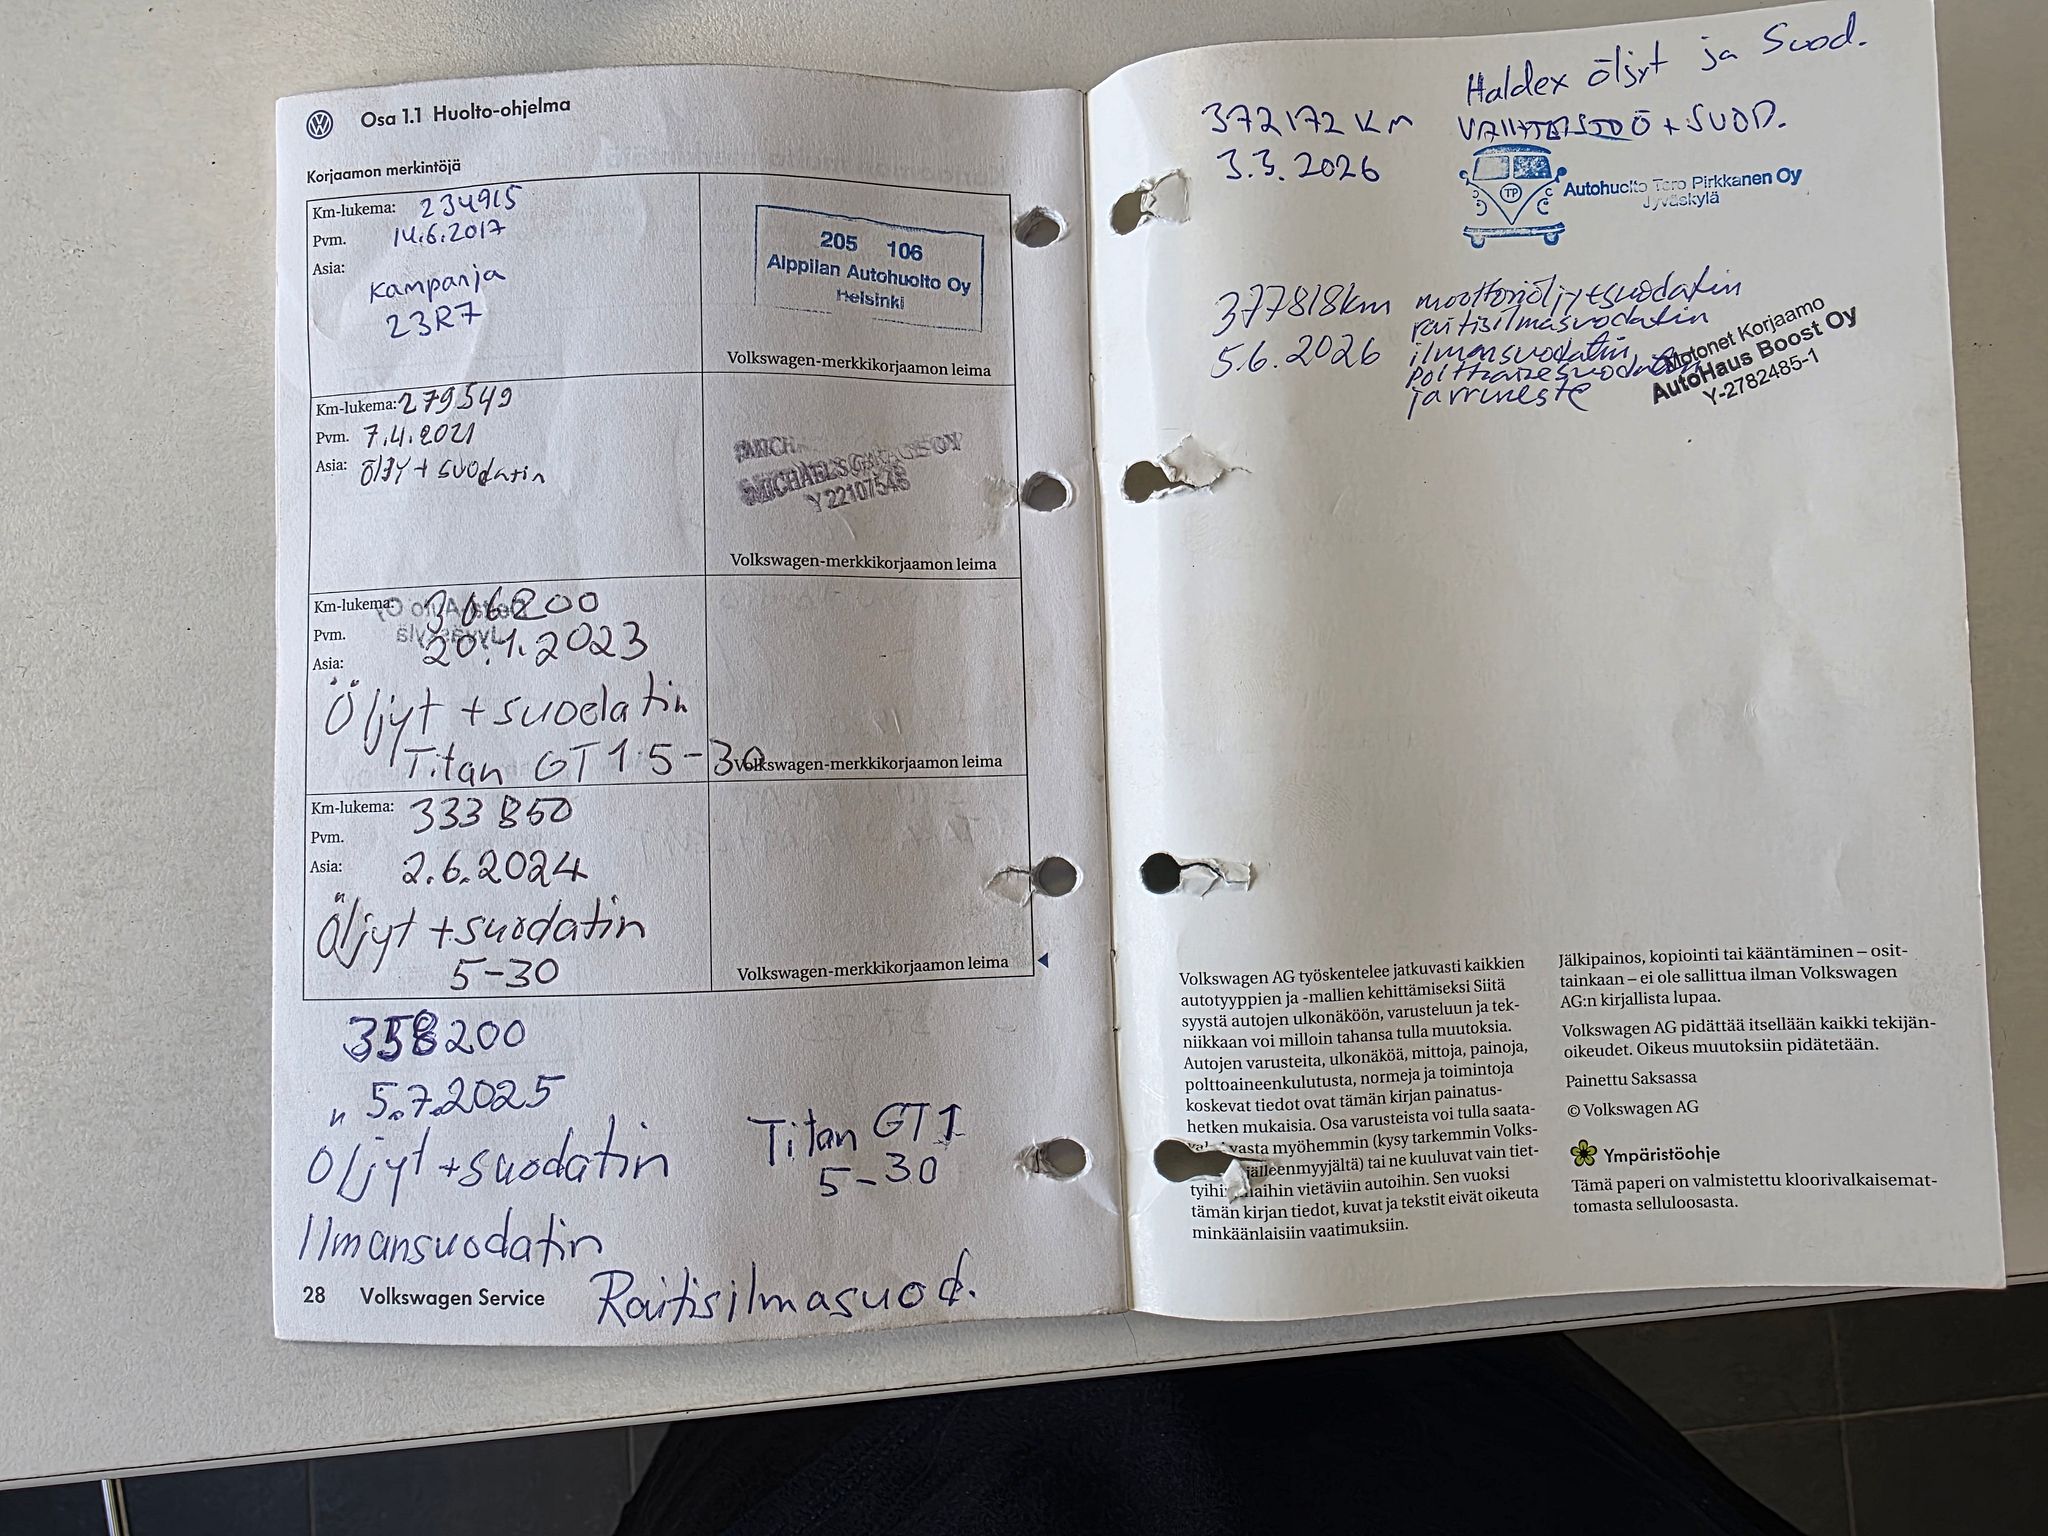 Osa 1.1 Huolto-ohjelma
Korjaamon merkintöjä
Km-lukema: 234915
Pvm. 14.6.2017
Asia:
Kampanja
23R7
205 106
Alppilan Autohuolto Oy
Helsinki
Volkswagen-merkkikorjaamon leima
Km-lukema: 279549
Pvm. 7.4.2021
Asia: Öljy + suodatin
MICHAELS GARAGE OY
Y22107546
Volkswagen-merkkikorjaamon leima
Km-lukema: 306200
Pvm. 20.1.2023
Asia:
Öljyt + suodatin
Titan GT1 5-30
Volkswagen-merkkikorjaamon leima
Km-lukema: 333 850
Pvm.
Asia: 2.6.2024
Öljyt + suodatin
5-30
Volkswagen-merkkikorjaamon leima
358200
5.7.2025
Öljyt + suodatin
Titan GT1
5-30
Ilmansuodatin
Raitisilmasuod.
28 Volkswagen Service
Haldex öljyt ja Suod.
372172 KM
+ SUOD.
3.3.2026
TP
Autohuolto Tero Pirkkanen Oy
Jyväskylä
377818km moottoriöljy+suodatin
raitisilmasuodatin
5.6.2026 ilmansuodatin,
polttoainesuodatin
jarruneste
Motonet Korjaamo
AutoHaus Boost Oy
Y-2782485-1
Volkswagen AG työskentelee jatkuvasti kaikkien
autotyyppien ja -mallien kehittämiseksi Siitä
syystä autojen ulkonäköön, varusteluun ja tek-
niikkaan voi milloin tahansa tulla muutoksia.
Autojen varusteita, ulkonäköä, mittoja, painoja,
polttoaineenkulutusta, normeja ja toimintoja
koskevat tiedot ovat tämän kirjan painatus-
hetken mukaisia. Osa varusteista voi tulla saata-
vasta myöhemmin (kysy tarkemmin Volks-
jälleenmyyjältä) tai ne kuuluvat vain tiet-
tyihin maihin vietäviin autoihin. Sen vuoksi
tämän kirjan tiedot, kuvat ja tekstit eivät oikeuta
minkäänlaisiin vaatimuksiin.
Jälkipainos, kopiointi tai kääntäminen – osit-
tainkaan – ei ole sallittua ilman Volkswagen
AG:n kirjallista lupaa.
Volkswagen AG pidättää itsellään kaikki tekijän-
oikeudet. Oikeus muutoksiin pidätetään.
Painettu Saksassa
© Volkswagen AG
Ympäristöohje
Tämä paperi on valmistettu kloorivalkaisemat-
tomasta selluloosasta.